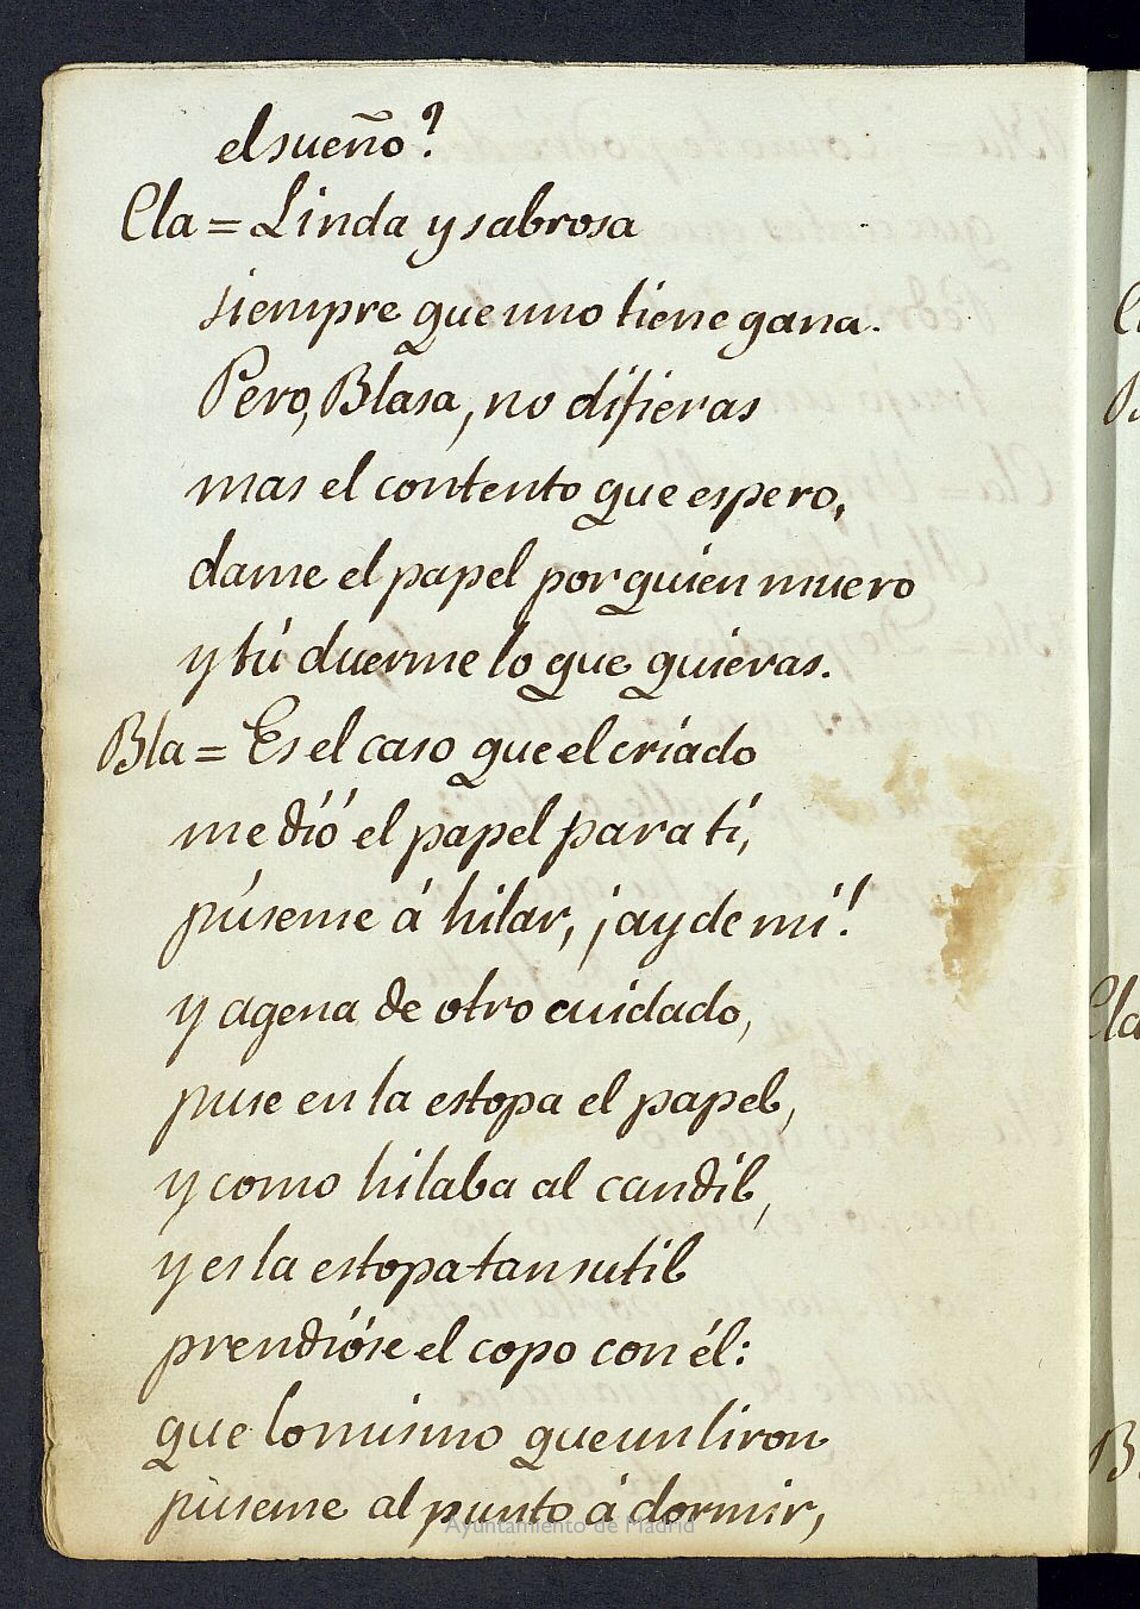 el sueño?
Cla = Linda y sabrosa
siempre que uno tiene gana.
Pero, Blasa, no difieras
mas el contento que espero,
dame el papel por quien muero
y tú duerme lo que quieras.
Bla = Es el caso que el criado
me dió el papel para tí,
púseme á hilar, ¡ay de mí!
y agena de otro cuidado,
puse en la estopa el papel,
y como hilaba al candil,
y es la estopa tan sutil
prendióse el copo con él:
que lo mismo que un liron
púseme al punto á dormir,
Ayuntamiento de Madrid
Cla
B